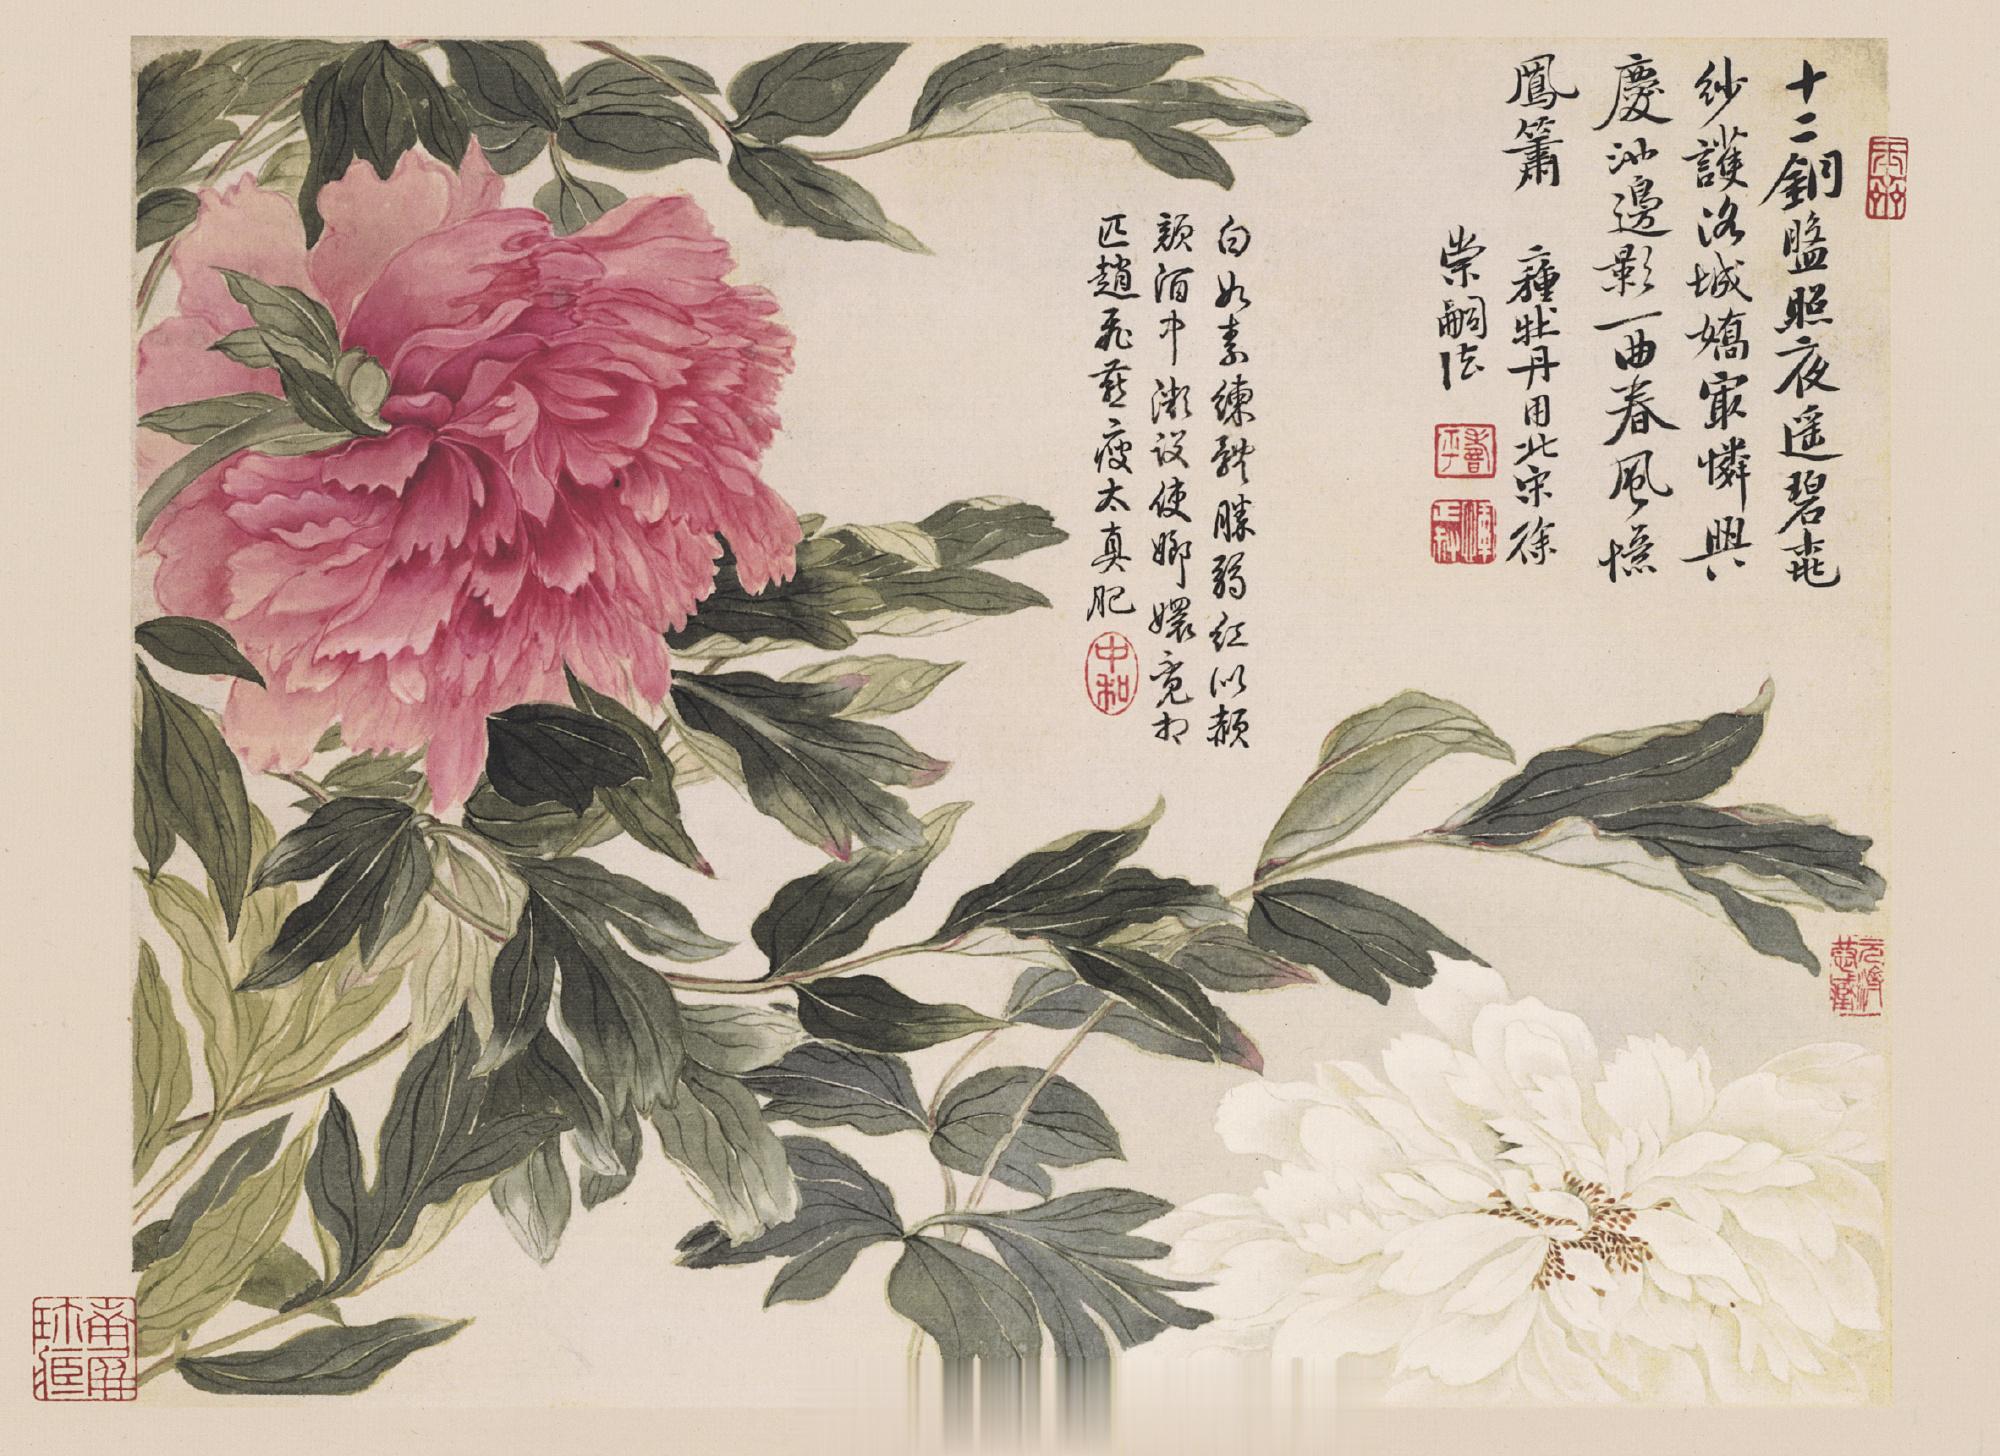 十二銅盤照夜遥碧桃
紗護洛城嬌㝡憐興
慶池邊影一曲春風憶
鳳簫 穜牡丹用北宋徐
崇嗣法
壽平
白如素練體勝弱紅似赬
顏酒中潮设使嫏嬛竟相
匹趙飛燕瘦太真肥
中和